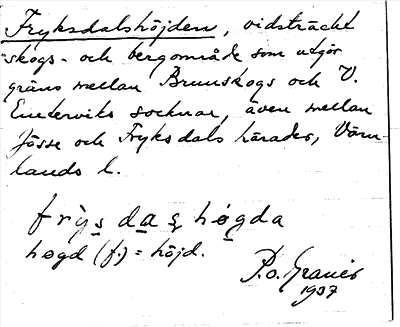 Fryksdalshöjden, vidsträckt
skogs- och bergområde som utgör
gräns mellan Brunskogs och V.
Emterviks socknar, även mellan
Jösse och Fryksdals härader, Värm-
lands l.
frỳs das høgda
høgd (f.) = höjd.
P.o. Graner
1937